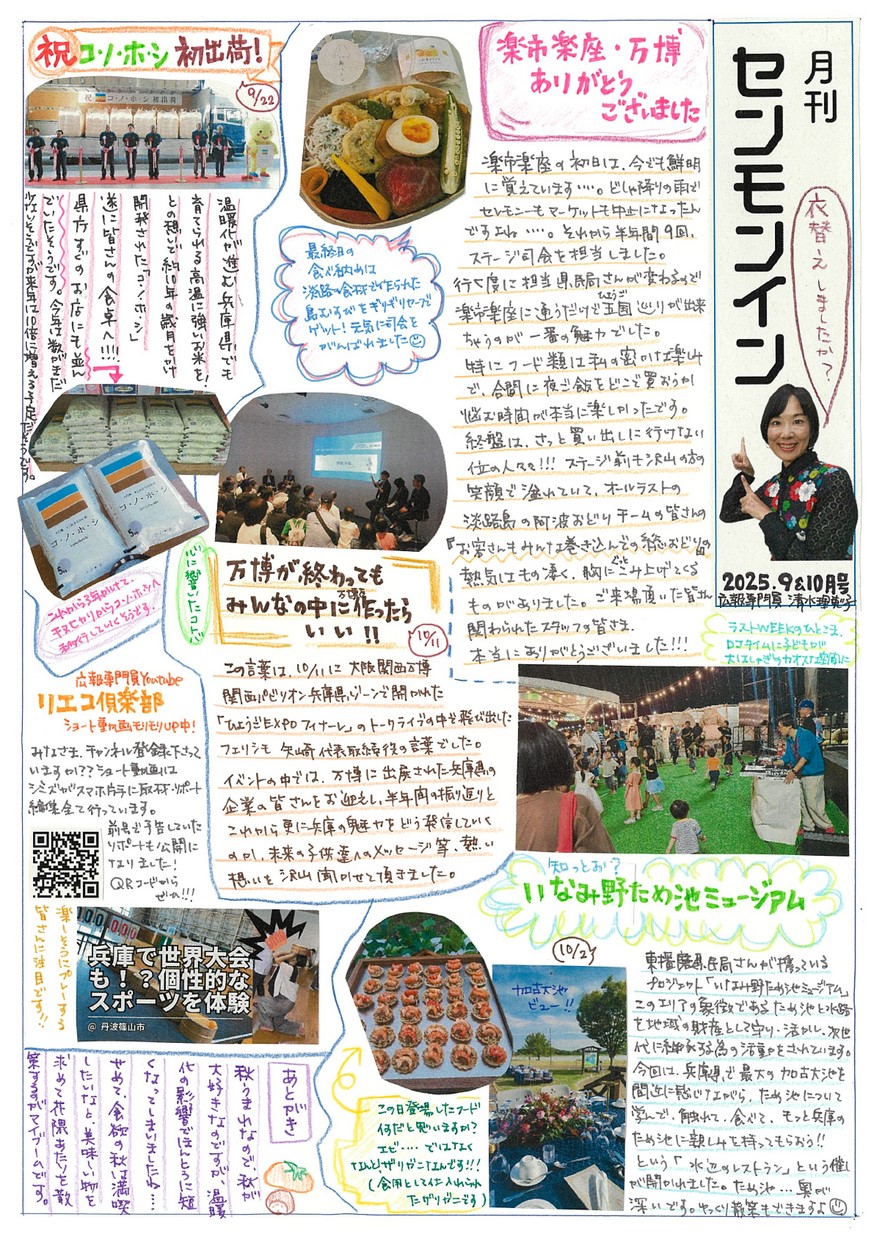 月刊
センモンイン
衣替えしましたか?
2025.9&10月号
広報専門員 清水理英子
楽市楽座・万博
ありがとう
ございました
楽市楽座の初日は、今でも鮮明
に覚えています…。どしゃ降りの雨で
セレモニーもマーケットも中止になったん
ですよね…。それから半年間9回、
ステージ司会を担当しました。
行く度に担当県民局さんが変わるので
楽市楽座に通うだけで五国巡りが出来
ひょうご
ちゃうのが一番の魅力でした。
特にフード類は私の密かな楽しみ
で、合間に夜ご飯をどこで買おうか
悩む時間が本当に楽しかったです。
終盤は、さっと買い出しに行けない
位の人々!!! ステージ前も沢山の方の
笑顔で溢れていて、オールラストの
淡路島の阿波おどりチームの皆さんの
『お客さんもみんな巻き込んでの総おどり』の
熱気はもの凄く、胸にこみ上げてくる
ものがありました。ご来場頂いた皆さん
関わられたスタッフの皆さま、
本当にありがとうございました!!!
最終日の
食べ納めは
淡路の食材で作られた
島むすびをギリギリセーフで
ゲット!元気に司会を
がんばれました
祝 コ・ノ・ホ・シ 初出荷!
9/22
祝 コ・ノ・ホ・シ 初出荷
温暖化が進む兵庫県でも
育てられる高温に強いお米を!
との想いで約10年の歳月をかけ
開発された「コ・ノ・ホ・シ」
遂に皆さんの食卓へ!!!
県庁すぐのお店にも並ん
でいたそうです。今年は数がまだ
少ないそうですが来年は10倍に増える予定だそうです。
コ・ノ・ホ・シ
コ・ノ・ホ・シ
5kg
これから3年かけて
キヌヒカリからコ・ノ・ホ・シへ
移行していくそうです。
心に響いたコトバ
万博が終わっても
みんなの中に万博を作ったら
いい!!
10/11
この言葉は、10/11に大阪関西万博
関西パビリオン兵庫県ゾーンで開かれた
「ひょうごEXPOフィナーレ」のトークライブの中で飛び出した
フェリシモ 矢崎代表取締役の言葉でした。
イベントの中では、万博に出展された兵庫県の
企業の皆さんをお迎えし、半年間の振り返りと
これから更に兵庫の魅力をどう発信していく
のか、未来の子供達へのメッセージ等、熱い
想いを沢山聞かせて頂きました。
ラストWEEKのひとこま。
DJタイムに子どもが
大はしゃぎのカオスな空間に
広報専門員Youtube
リエコ倶楽部
ショート動画モリモリUP中!
みなさま、チャンネル登録下さって
いますか??ショート動画は
シミズがスマホ片手に取材・リポート
編集全て行っています。
前号で予告していた
リポートも公開に
なりました!
QRコードから
ぜひ!!!
楽しそうにプレーする
皆さんに注目です!!
兵庫で世界大会
も!?個性的な
スポーツを体験
@ 丹波篠山市
知っとお?
いなみ野ため池ミュージアム
10/2
加古大池
ビュー!!
東播磨県民局さんが携っている
プロジェクト「いなみ野ため池ミュージアム」
このエリアの象徴であるため池と水路
を地域の財産として守り・活かし、次世
代に継承する為の活動をされています。
今回は、兵庫県で最大の加古大池を
間近に感じながら、ため池について
学んで、触れて、食べて、もっと兵庫の
ため池に親しみを持ってもらおう!!
という「水辺のレストラン」という催し
が開かれました。ため池…奥が
深いです。ゆっくり散策もできますよ
この日登場したフード
何だと思いますか?
エビ…ではなく
なんとザリガニなんです!!!
(食用として仕入れられ
たザリガニです)
あとがき
秋うまれなので、秋が
大好きなのですが、温暖
化の影響でほんとうに短
くなってしまいましたね…
せめて食欲の秋は満喫
したいなと美味しい物を
求めて花隈あたりを散
策するがマイブームです。